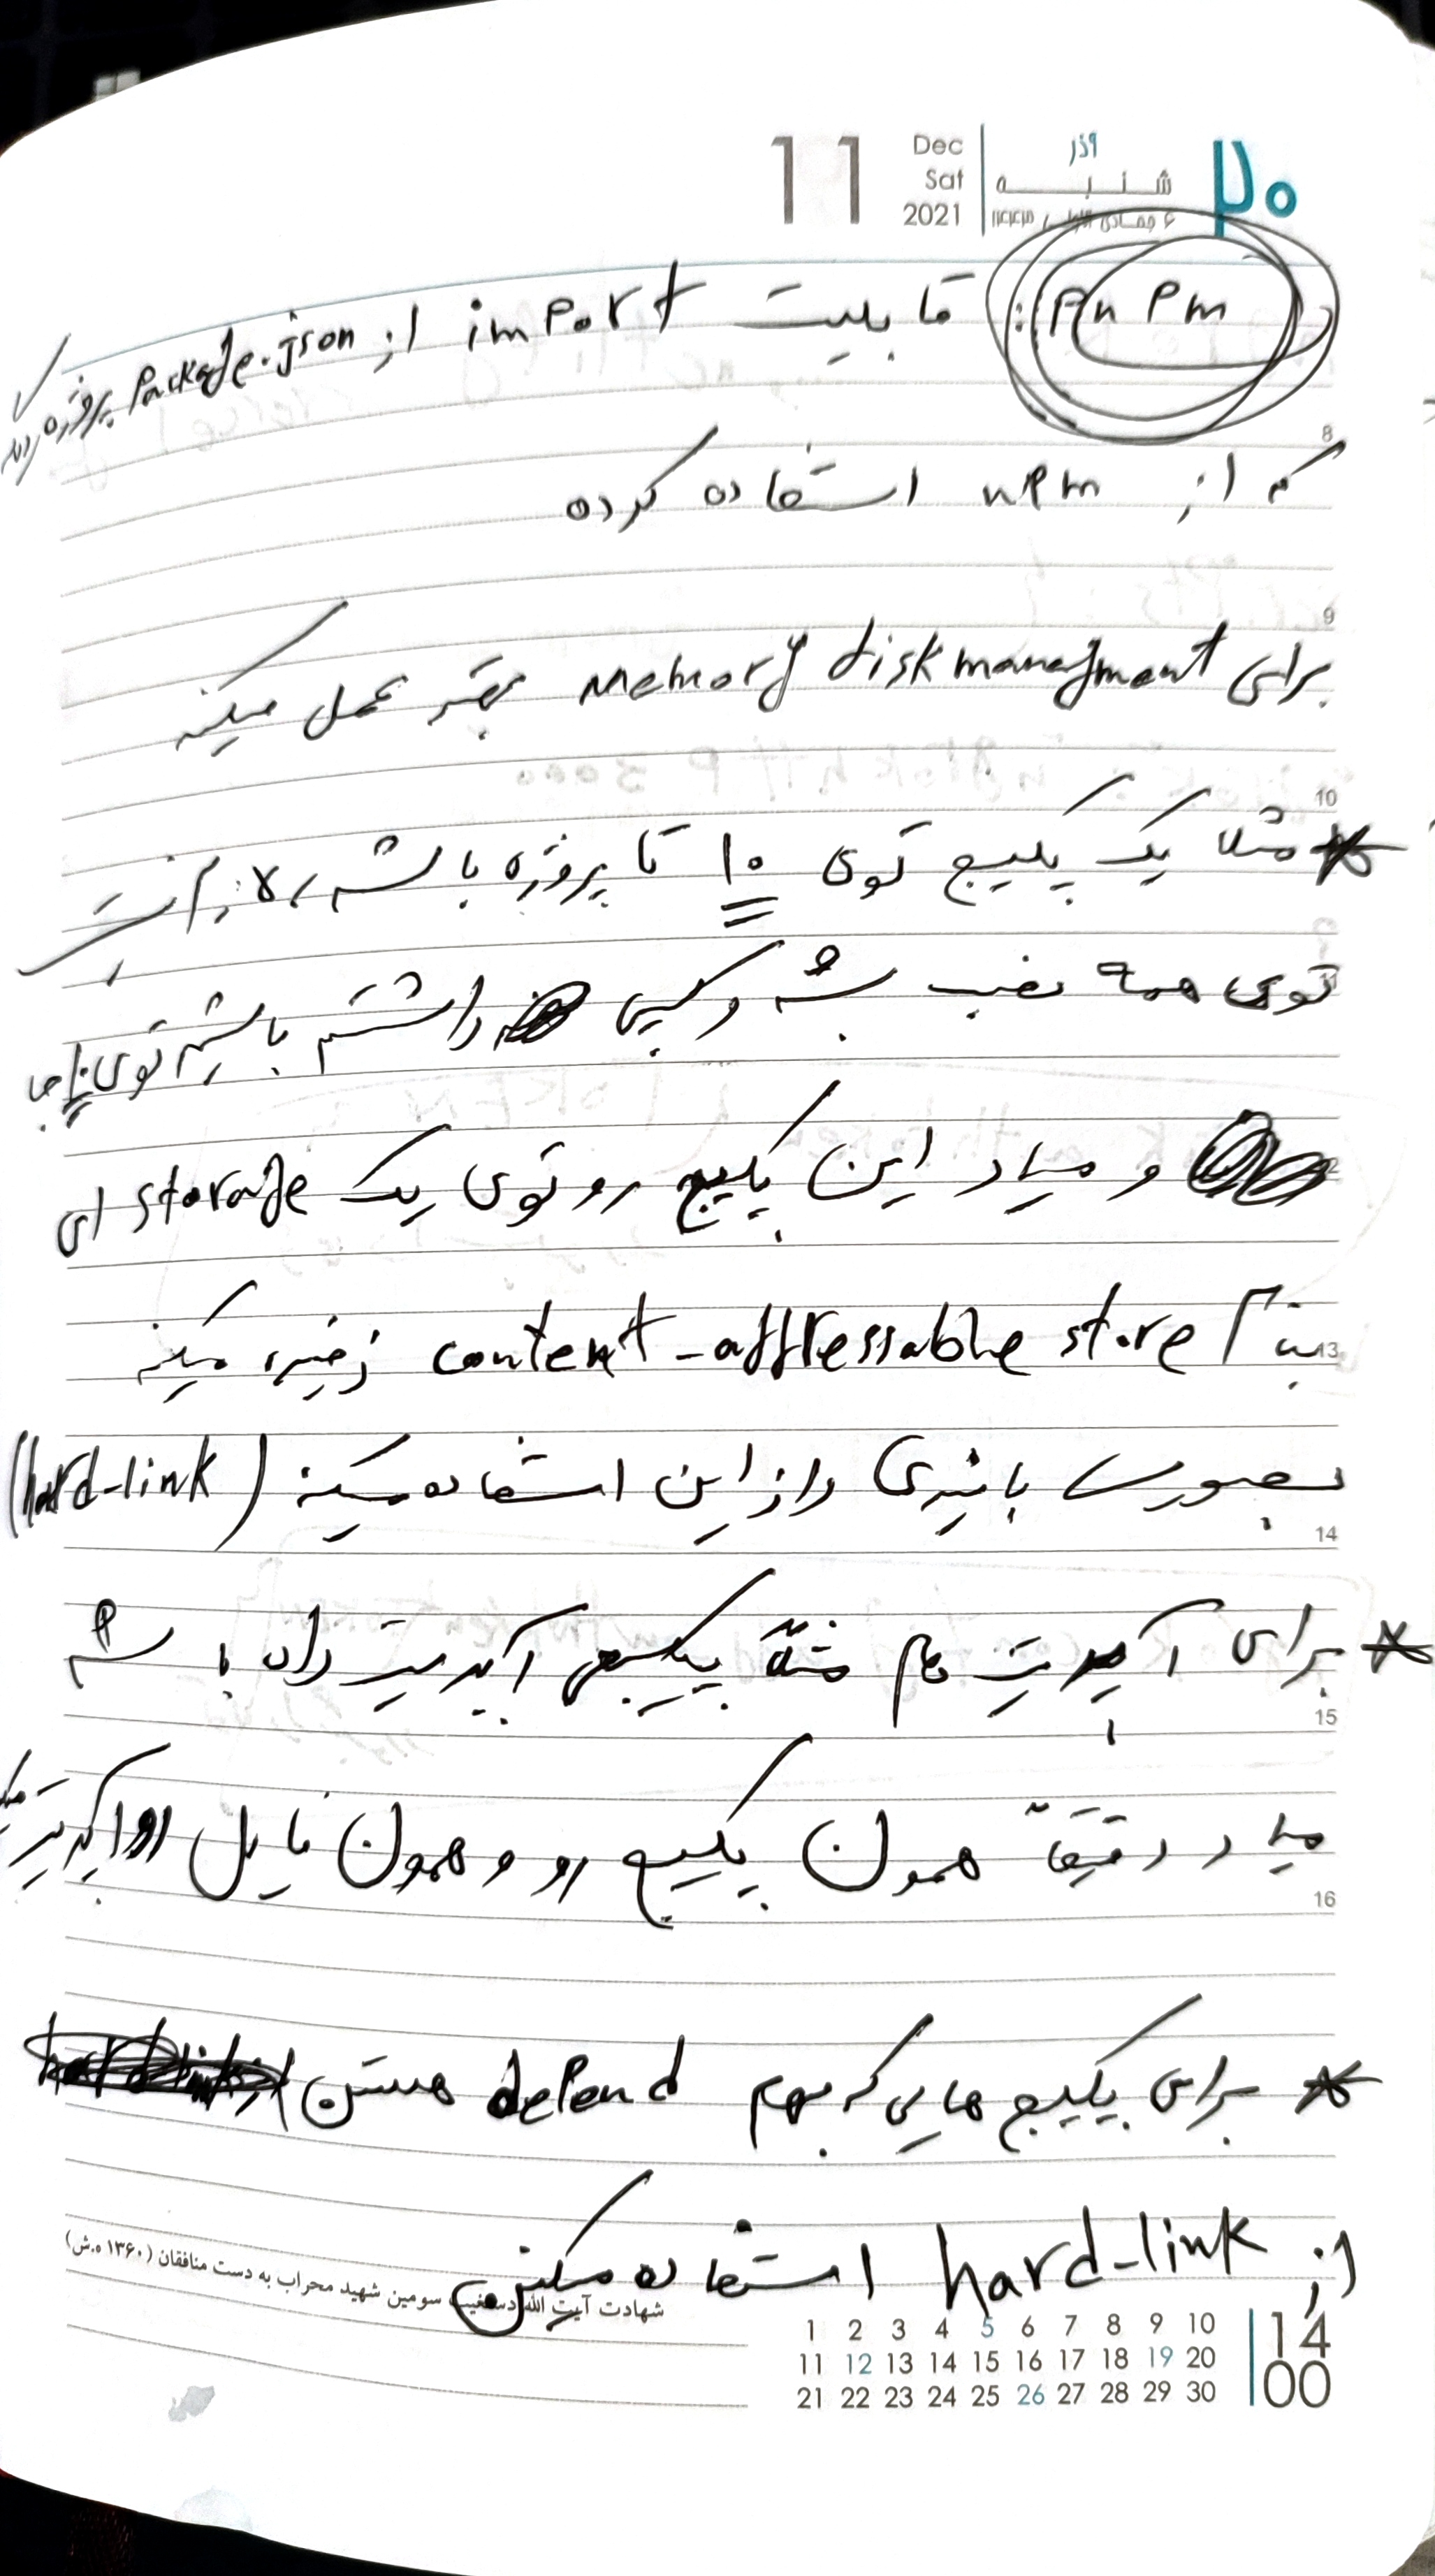 11 Dec Sat 2021 آذر شنبه ۶ جمادی الاول ۱۴۴۳ ۲۰
PnPm: قابلیت import از Package.json پروژه
که از nPm استفاده کرده
8
9
برای Memory diskmanagment بهتر عمل میکنه
10
* مثلا یک پکیج توی ۱۰ تا پروژه باشه، لازم نیست
توی همه نصب بشه و کپی داشته باشیم توی ۱۰ جا
و میاد این پکیج رو توی یک storage ای
13
بنام content-addressable store ذخیره میکنه
بصورت باینری و از این استفاده میکنه (hard-link)
14
* برای آپدیت هم مثلاً پکیجی آپدیت داده باشه
15
میاد دقیقاً همون پکیج رو و همون فایل رو آپدیت
16
* برای پکیج هایی که بهم depend هستن
از hard-link استفاده میکنن
شهادت آیت الله دستغیب سومین شهید محراب به دست منافقان (۱۳۶۰ ه.ش)
1 2 3 4 5 6 7 8 9 10
11 12 13 14 15 16 17 18 19 20
21 22 23 24 25 26 27 28 29 30
1400